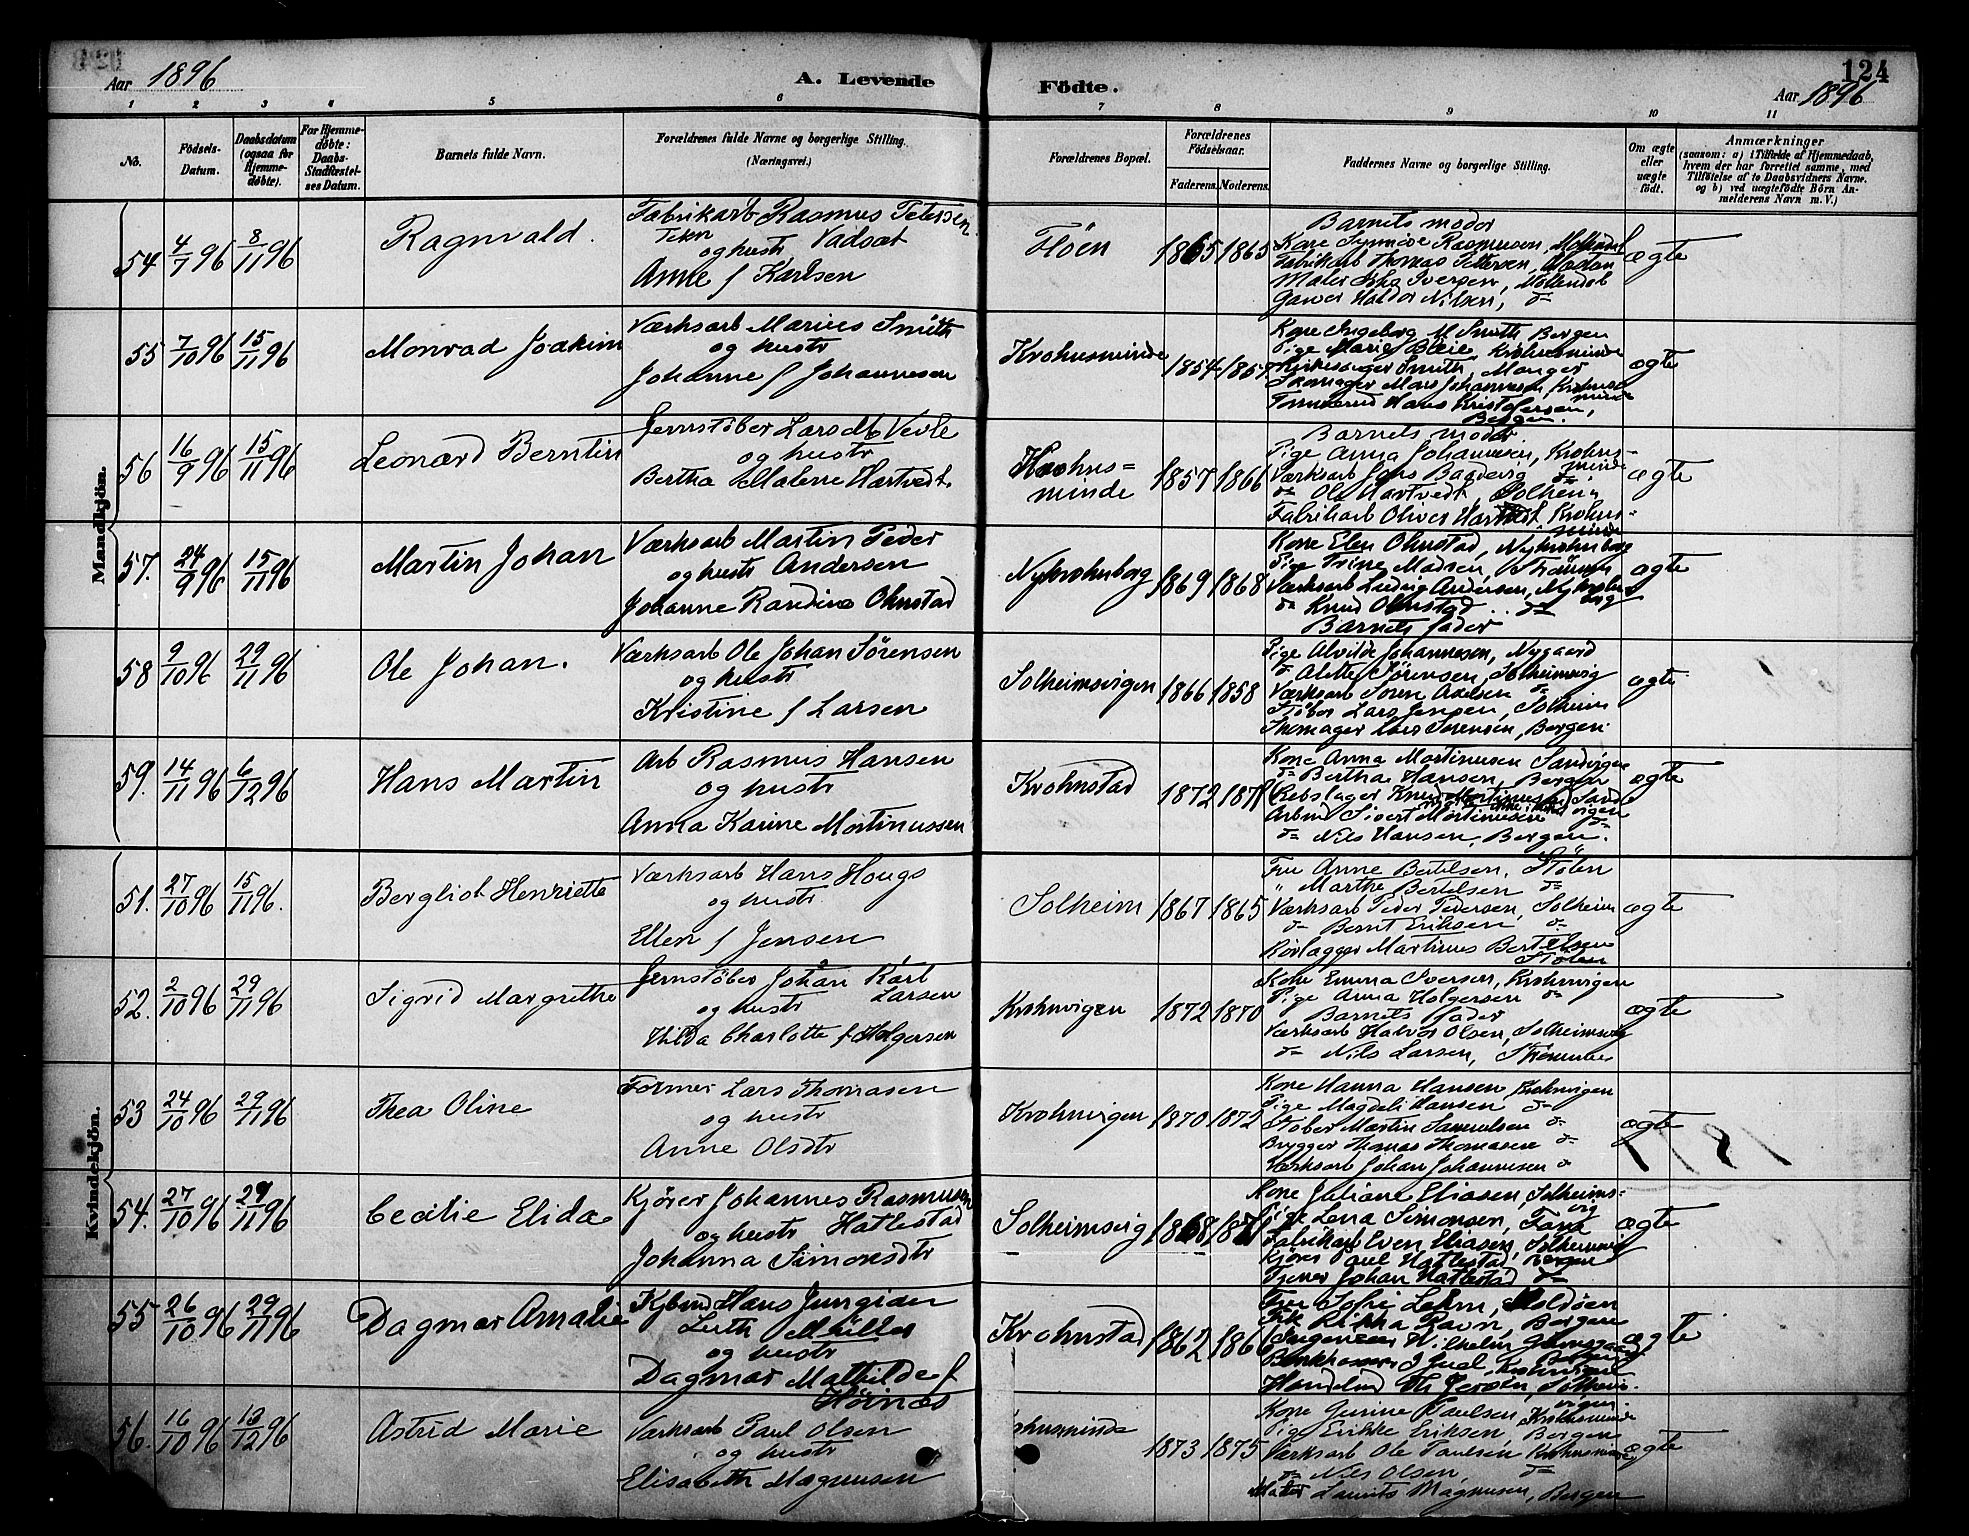 124
Aar 1896
A. Levende
Födte.
Aar 1896
1 2 3 4 5 6 7 8 9 10 11
No.
Födsels-Datum.
Daabsdatum (ogsaa for Hjemme-döbte).
For Hjemme-döbte: Daabs-Stadfæstel-ses Datum.
Barnets fulde Navn.
Forældrenes fulde Navne og borgerlige Stilling.
(Næringsvei.)
Forældrenes Bopæl.
Forældrenes Födselsaar.
Faderens. Moderens.
Faddernes Navne og borgerlige Stilling.
Om ægte eller uægte födt.
Anmærkninger
(saasom: a) i Tilfælde af Hjemmedaab, hvem der har forrettet samme, med Tilföielse af to Daabsvidners Navne. og b) ved uægtefödte Börn An-melderens Navn m. V.)
Mandkjön.
54 4/7 96 8/11 96 Ragnvald.
Fabrikarb Rasmus Petersen
og hustr Vadsæt
Anne f Karlsen
Fløen 1865 1865
Barnets moder
Kone Synneve Rasmussen, Møllendal
Fabrikarb Thomas Pettersen,
Maler Iversen, Møllendal
Garver Haldor Nilsen, do
ægte
55 7/10 96 15/11 96 Monrad Joakim
Værksarb Marius Smith
og hustr
Johanne f Johannesen
Krohnsminde 1854 1857
Kone Ingeborg M Smith Bergen
Pige Marie Krohnsminde
Kirkesanger Smith, Manger
Skomager Mars Johannesen, Krohns-minde
Tømmermd Hans Kristofersen,
Bergen.
ægte
56 16/9 96 15/11 96 Leonard Berntin
Jernstøber Lars Vevle
og hustr
Bertha Malene Hartvedt.
Krohns=
minde 1857 1866
Barnets moder
Pige Anna Johannesen, Krohns-minde
Værksarb Jens do
do Ole Hartvedt, Solheim
Fabrikarb Oliver Hartvedt, Krohns-minde
ægte
57. 24/9 96 15/11 96 Martin Johan
Værksarb Martin Peder
og hustr Andersen
Johanne Randine Ohnstad
Nykrohnborg 1869 1868
Kone Elen Ohnstad, Nykrohnborg
Pige Trine Madsen,
Værksarb Ludvig Andersen, Nykrohn-borg
do Knud Ohnstad do
Barnets fader
ægte
58 9/10 96 29/11 96 Ole Johan.
Værksarb Ole Johan Sørensen
og hustr
Kristine f Larsen
Solheimsvigen 1866 1858
Pige Alvilde Johannesen, Nygaard
do Alette Sørensen, Solheimsvig
Værksarb Søren Axelsen do
Støber Lars Jensen, Solheim
Skomager Lars Sørensen, Bergen.
ægte
59. 14/11 96 6/12 96 Hans Martin
Arb Rasmus Hansen
og hustr
Anna Karine Mortinussen
Krohnstad 1872
Kone Anna Mortinusen Sandvigen
do Bertha Hansen, Bergen
Rebslager Knud Mortinusen, Sand-vigen
Arbmd Sivert Mortinusen do
do Nils Hansen, Bergen.
ægte
Kvindekjön.
51. 27/10 96 15/11 96. Bergliot Henriette
Værksarb Hans Hougs
og hustr
Ellen f Jensen
Solheim 1867 1865
Fru Anne Bertelsen, Stølen
" Marthe Bertelsen do
Værksarb Peder Pedersen, Solheim
do Bernt Eriksen do
Rørlægger Martinus Bertelsen
Stølen
ægte
52. 2/10 96 29/11 96 Sigrid Margrethe
Jernstøber Johan Karl
og hustr Larsen
Hilda Charlotte f Holgersen
Krohnvigen 1872 1870
Kone Emma Iversen, Krohnvigen
Pige Anna Holgersen do
Barnets fader
Værksarb Halvor Olsen, Solheimsvig
do Nils Larsen,
ægte
53 24/10 96 29/11 96 Thea Oline
Former Lars Thomasen
og hustr
Anne Olsdtr
Krohnvigen 1870 1872
Kone Hanna Hansen, Krohnvigen
Pige Magdeli Hansen do
Støber Martin Samuelsen do
Brygger Thomas Thomasen do
Værksarb Johan Johannesen do
ægte
54. 27/10 96 29/11 96 Cecilie Elida
Kjører Johannes Rasmusen
og hustr Hatlestad
Johanna Simonsdtr
Solheimsvig 1868 1871
Kone Juliane Eliasen, Solheims=vig
Pige Lena Simonsen, Fane
Fabrikarb Even Eliasen, Solheimsvig
Kjører Paul Hatlestad, Bergen
Tjener Johan Hatlestad do
ægte
55 26/10 96 29/11 96 Dagmar Amalie
Kjbmd Hans Jungian
Leth Møller
og hustr
Dagmar Mathilde f
Hørnæs
Krohnstad 1862 1866
Fru Sofie Lehm,
Frk Rikka Ravn, Bergen
Ingeniør Wilhelm
J Juel, Krohnstad
Handelsmd Th Jersen, Solheims-vigen.
ægte
56. 16/10 96 13/12 96 Astrid Marie
Værksarb Paul Olsen
og hustr
Elisabeth Magnusen
ohnsminde 1873 1875
Kone Gurine Paulsen, Krohnsminde
Pige Erikke Eriksen, Bergen
Værksarb Ole Paulsen Krohnsminde
do Nils Olsen, do
Maler Laurits Magnusen, Bergen
ægte